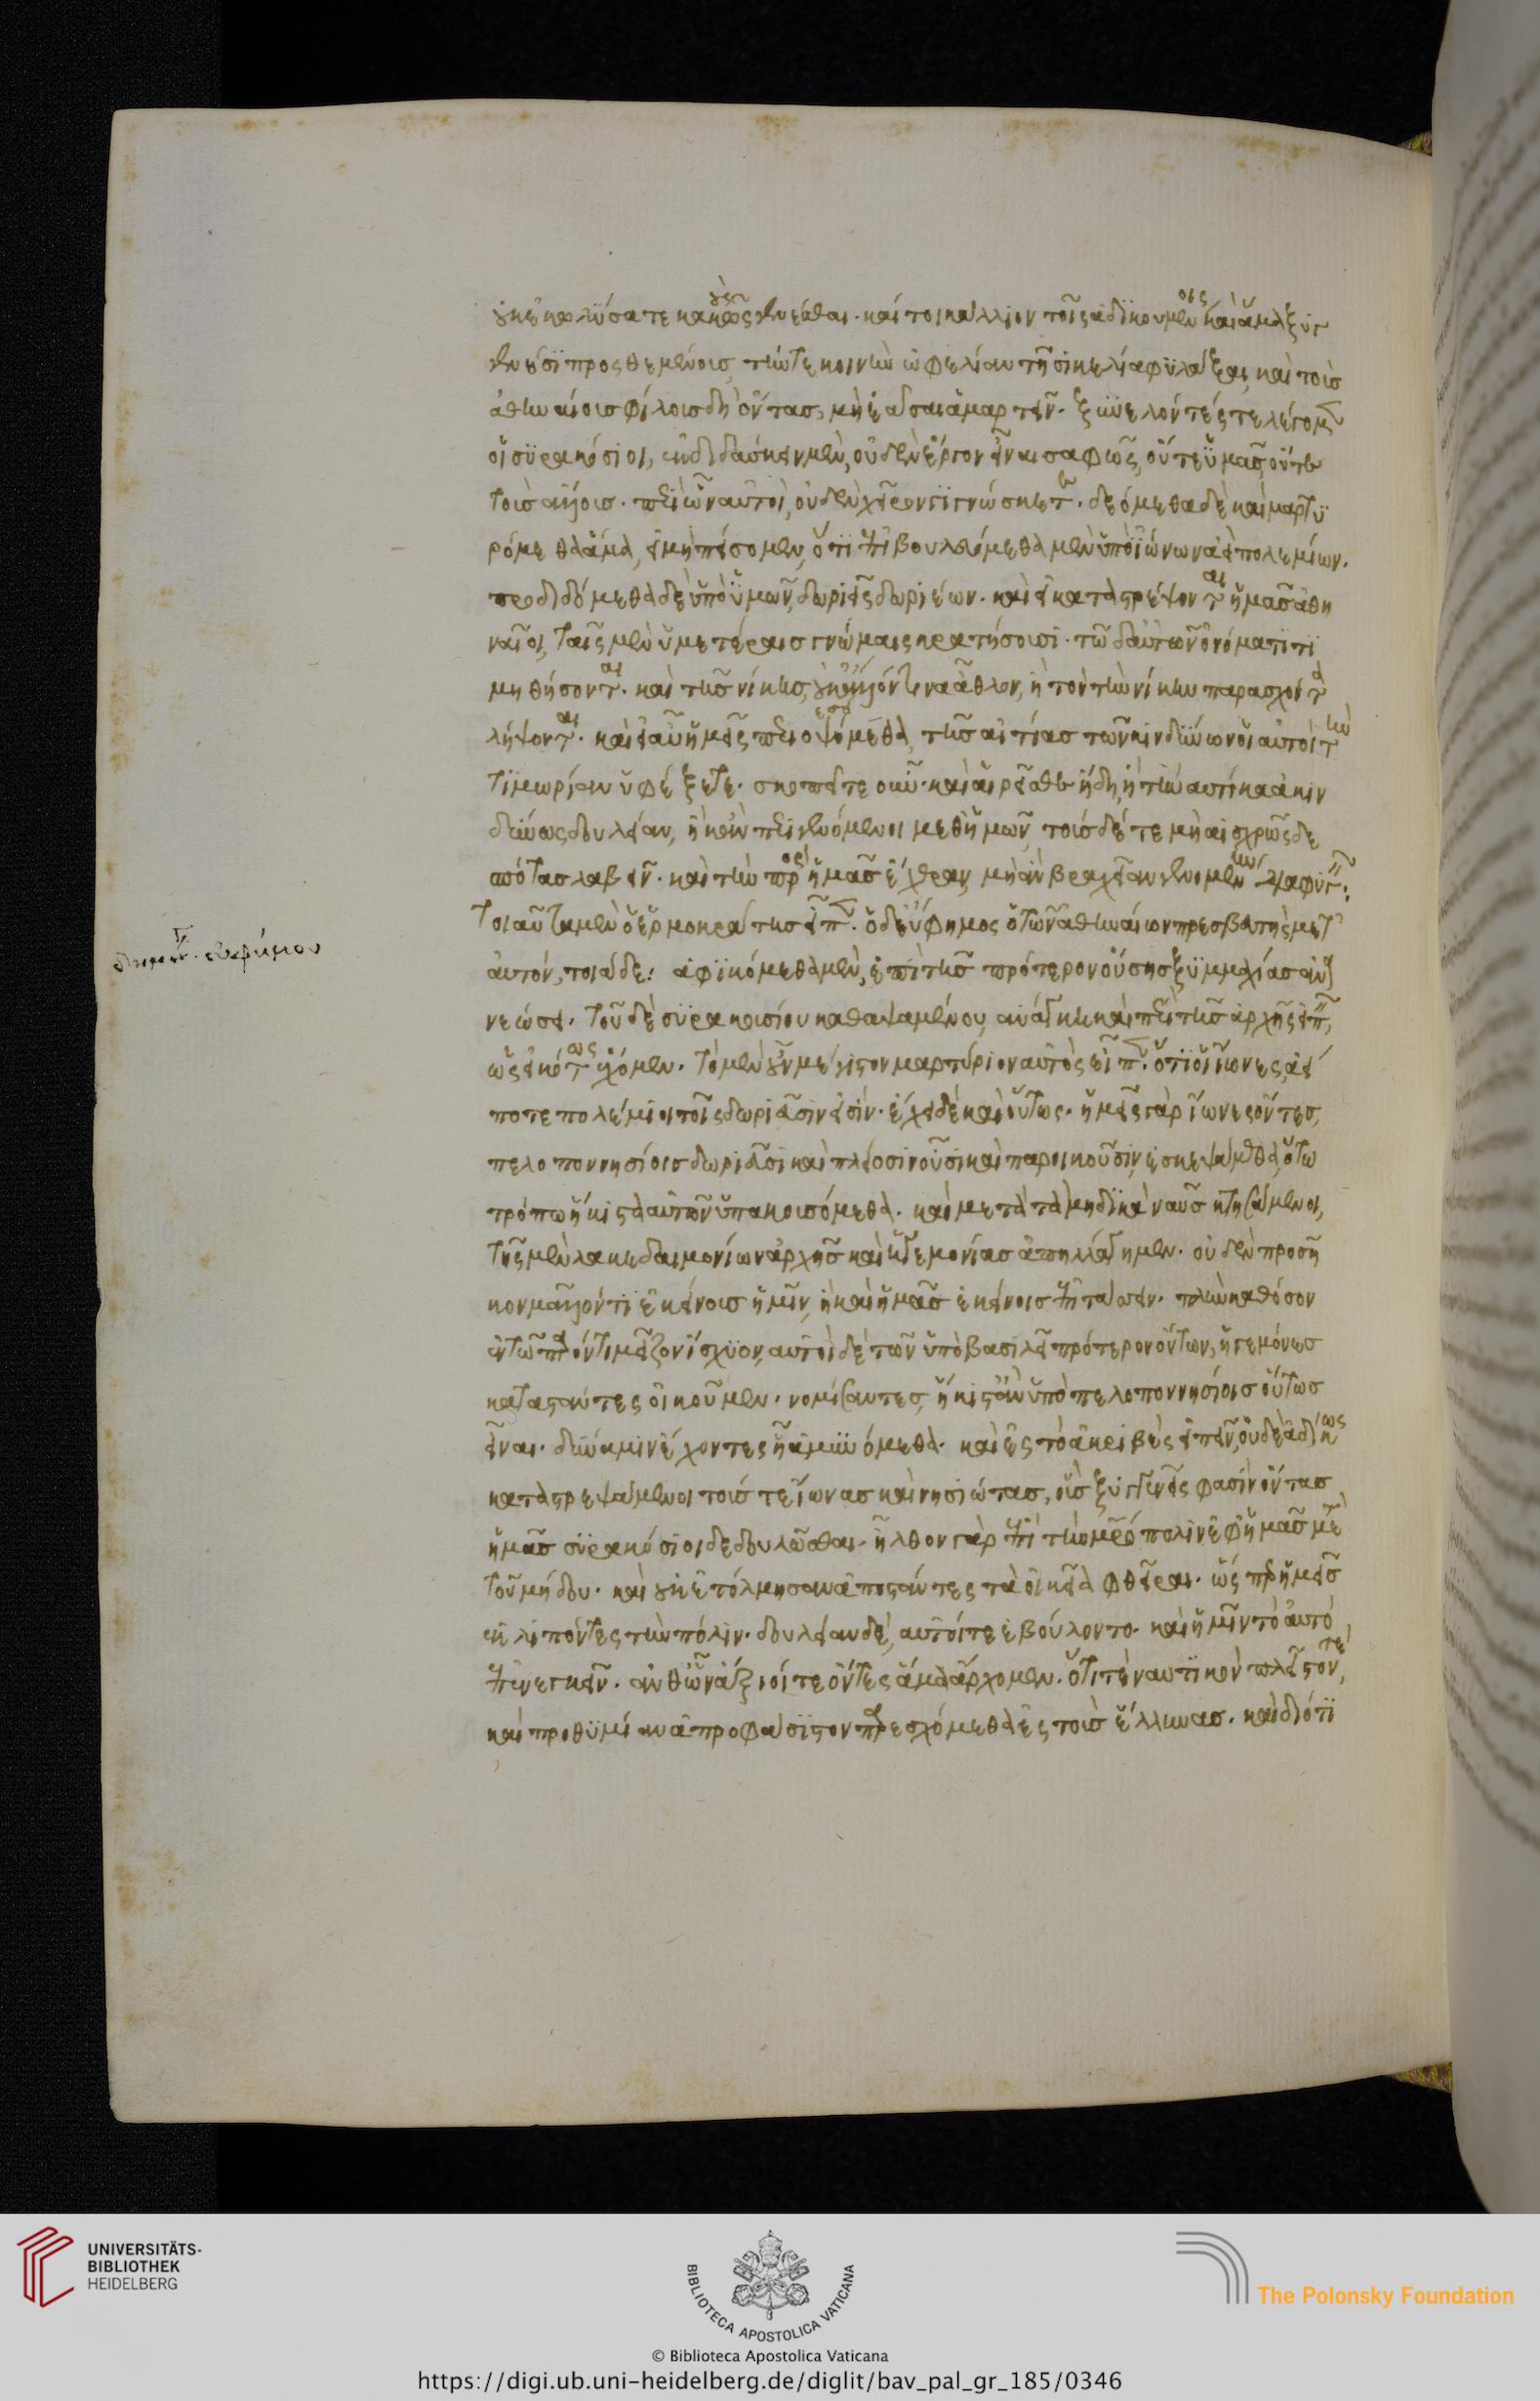 οὐκ ἐκωλύσατε κακοὺς γενέσθαι. καίτοι κάλλιον τοῖς ἀδικουμένοις καὶ ἅμα ξυγ
γενέσι προσθεμένοις τήν τε κοινὴν ὠφελίαν τῇ σικελίᾳ φυλάξαι, καὶ τοὺς
ἀθηναίους φίλους δὴ ὄντας, μὴ ἐᾶσαι ἁμαρτεῖν. ξυνελόντές τε λέγομεν
οἱ συρακόσιοι, ἐκδιδάσκειν μὲν, οὐδὲν ἔργον εἶναι σαφῶς, οὔτε ὑμᾶς, οὔτε
τοὺς ἄλλους. περὶ ὧν αὐτοὶ, οὐδὲν χεῖρον γιγνώσκετε. δεόμεθα δὲ καὶ μαρτυ
ρόμεθα ἅμα, εἰ μὴ πείσομεν, ὅτι ἐπιβουλευόμεθα μὲν ὑπὸ ἰώνων ἀεὶ πολεμίων.
προδιδόμεθα δὲ ὑπὸ ὑμῶν, δωριεῖς δωριέων. καὶ εἰ καταστρέψονται ἡμᾶς ἀθη
ναῖοι, ταῖς μὲν ὑμετέραις γνώμαις κρατήσουσι. τῷ δ' αὐτῶν ὀνόματι τι
μηθήσονται. καὶ τῆς νίκης, οὐκ ἄλλόν τινα ἆθλον, ἢ τὸν τὴν νίκην παρασχόντα
λήψονται. καὶ εἰ αὖ ἡμεῖς περιοψόμεθα, τῆς αἰτίας τῶν κινδύνων οἱ αὐτοὶ τὴν
τιμωρίαν ὑφέξετε. σκοπεῖτε οὖν. καὶ αἱρεῖσθε ἤδη, ἢ τὴν αὐτίκα ἀκιν
δύνως δουλείαν, ἢ κἂν περιγενόμενοι μεθ' ἡμῶν, τούσδέ τε μὴ αἰσχρῶς δε
σπότας λαβεῖν. καὶ τὴν πρὸς ἡμᾶς ἔχθραν, μὴ ἂν βραχεῖαν γενομένην διαφυγεῖν:
Τοιαῦτα μὲν ὁ ἑρμοκράτης εἶπεν. ὁ δ' εὔφημος ὁ τῶν ἀθηναίων πρεσβευτὴς μετ'
αὐτόν, τοιάδε: ἀφικόμεθα μὲν, ἐπὶ τῆς πρότερον οὔσης ξυμμαχίας ἀνα
νεώσει. τοῦ δὲ συρακουσίου καθαψαμένου, ἀνάγκη καὶ περὶ τῆς ἀρχῆς εἰπεῖν,
ὡς εἰκότως ἔχομεν. τὸ μὲν οὖν μέγιστον μαρτύριον αὐτὸς εἶπεν. ὅτι οἱ ἴωνες, ἀεί
ποτε πολέμιοι τοῖς δωριεῦσίν εἰσίν. ἔχει δὲ καὶ οὕτως. ἡμεῖς γὰρ ἴωνες ὄντες,
πελοποννησίοις δωριεῦσι καὶ πλείοσιν οὖσι καὶ παροικοῦσιν, ἐσκεψάμεθα, ὅτῳ
τρόπῳ ἥκιστα αὐτῶν ὑπακουσόμεθα. καὶ μετὰ τὰ μηδικὰ ναῦς κτησάμενοι,
τῆς μὲν λακεδαιμονίων ἀρχῆς καὶ ἡγεμονίας ἀπηλλάγημεν. οὐδὲν προσῆ
κον μᾶλλόν τι ἐκείνους ἡμῖν, ἢ καὶ ἡμᾶς ἐκείνοις ἐπιτάσσειν. πλὴν καθόσον
ἐν τῷ παρόντι μεῖζον ἴσχυον, αὐτοὶ δὲ τῶν ὑπὸ βασιλεῖ πρότερον ὄντων, ἡγεμόνες
καταστάντες οἰκοῦμεν. νομίσαντες, ἥκιστ' ἂν ὑπὸ πελοποννησίοις οὕτως
εἶναι. δύναμιν ἔχοντες ᾗ ἀμυνόμεθα. καὶ ἐς τὸ ἀκριβὲς εἰπεῖν, οὐδὲ ἀδίκως
καταστρεψάμενοι τούς τε ἴωνας καὶ νησιώτας, οὓς ξυγγενεῖς φασὶν ὄντας
ἡμᾶς συρακόσιοι δεδουλῶσθαι. ἦλθον γὰρ ἐπὶ τὴν μητρόπολιν ἐφ' ἡμᾶς μετὰ
τοῦ μήδου. καὶ οὐκ ἐτόλμησαν ἀποστάντες τὰ οἰκεῖα φθεῖραι. ὥσπερ ἡμεῖς
ἐκλιπόντες τὴν πόλιν. δουλείαν δὲ, αὐτοί τε ἐβούλοντο. καὶ ἡμῖν τὸ αὐτό
ἐπενεγκεῖν. ἀνθ' ὧν ἄξιοί τε ὄντες ἅμα ἄρχομεν. ὅτι τε ναυτικὸν πλεῖστόν τε,
καὶ προθυμίαν ἀπροφάσιστον παρεσχόμεθα ἐς τοὺς ἕλληνας. καὶ διότι
UNIVERSITÄTS-
BIBLIOTHEK
HEIDELBERG
BIBLIOTECA APOSTOLICA VATICANA
The Polonsky Foundation
© Biblioteca Apostolica Vaticana
https://digi.ub.uni-heidelberg.de/diglit/bav_pal_gr_185/0346